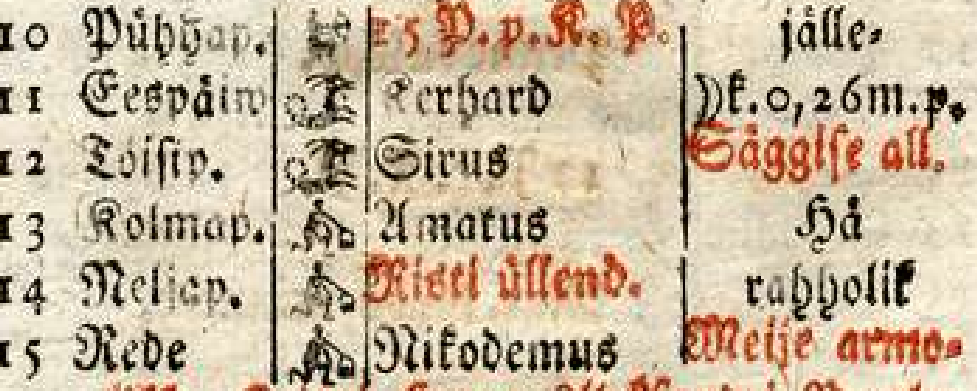 10 Pühhap. 15 P. p. K. P. jälle-
11 Eespäiw Kerhard )k. 0, 26 m. p.
12 Tõisip. Sirus Säggise all.
13 Kolmap. Amatus Hä
14 Neljap. Risti üllend. rahholik
15 Rede Nikodemus Meije armo-